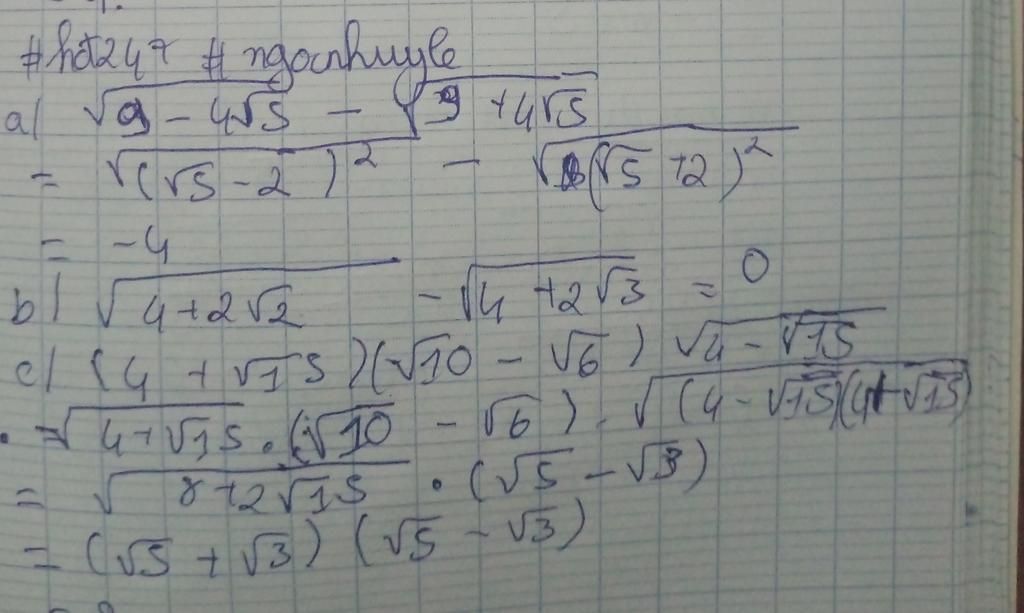 #hót247 # ngocnhuyle
a) √(9 - 4√5) - √(9 + 4√5)
= √((√5 - 2)²) - √((√5 + 2)²)
= -4
b) √(4 + 2√2) - √(4 + 2√3) = 0
c) (4 + √15)(√10 - √6) √(4 - √15)
= √(4 + √15) . (√10 - √6) . √((4 - √15)(4 + √15))
= √(8 + 2√15) . (√5 - √3)
= (√5 + √3) (√5 - √3)